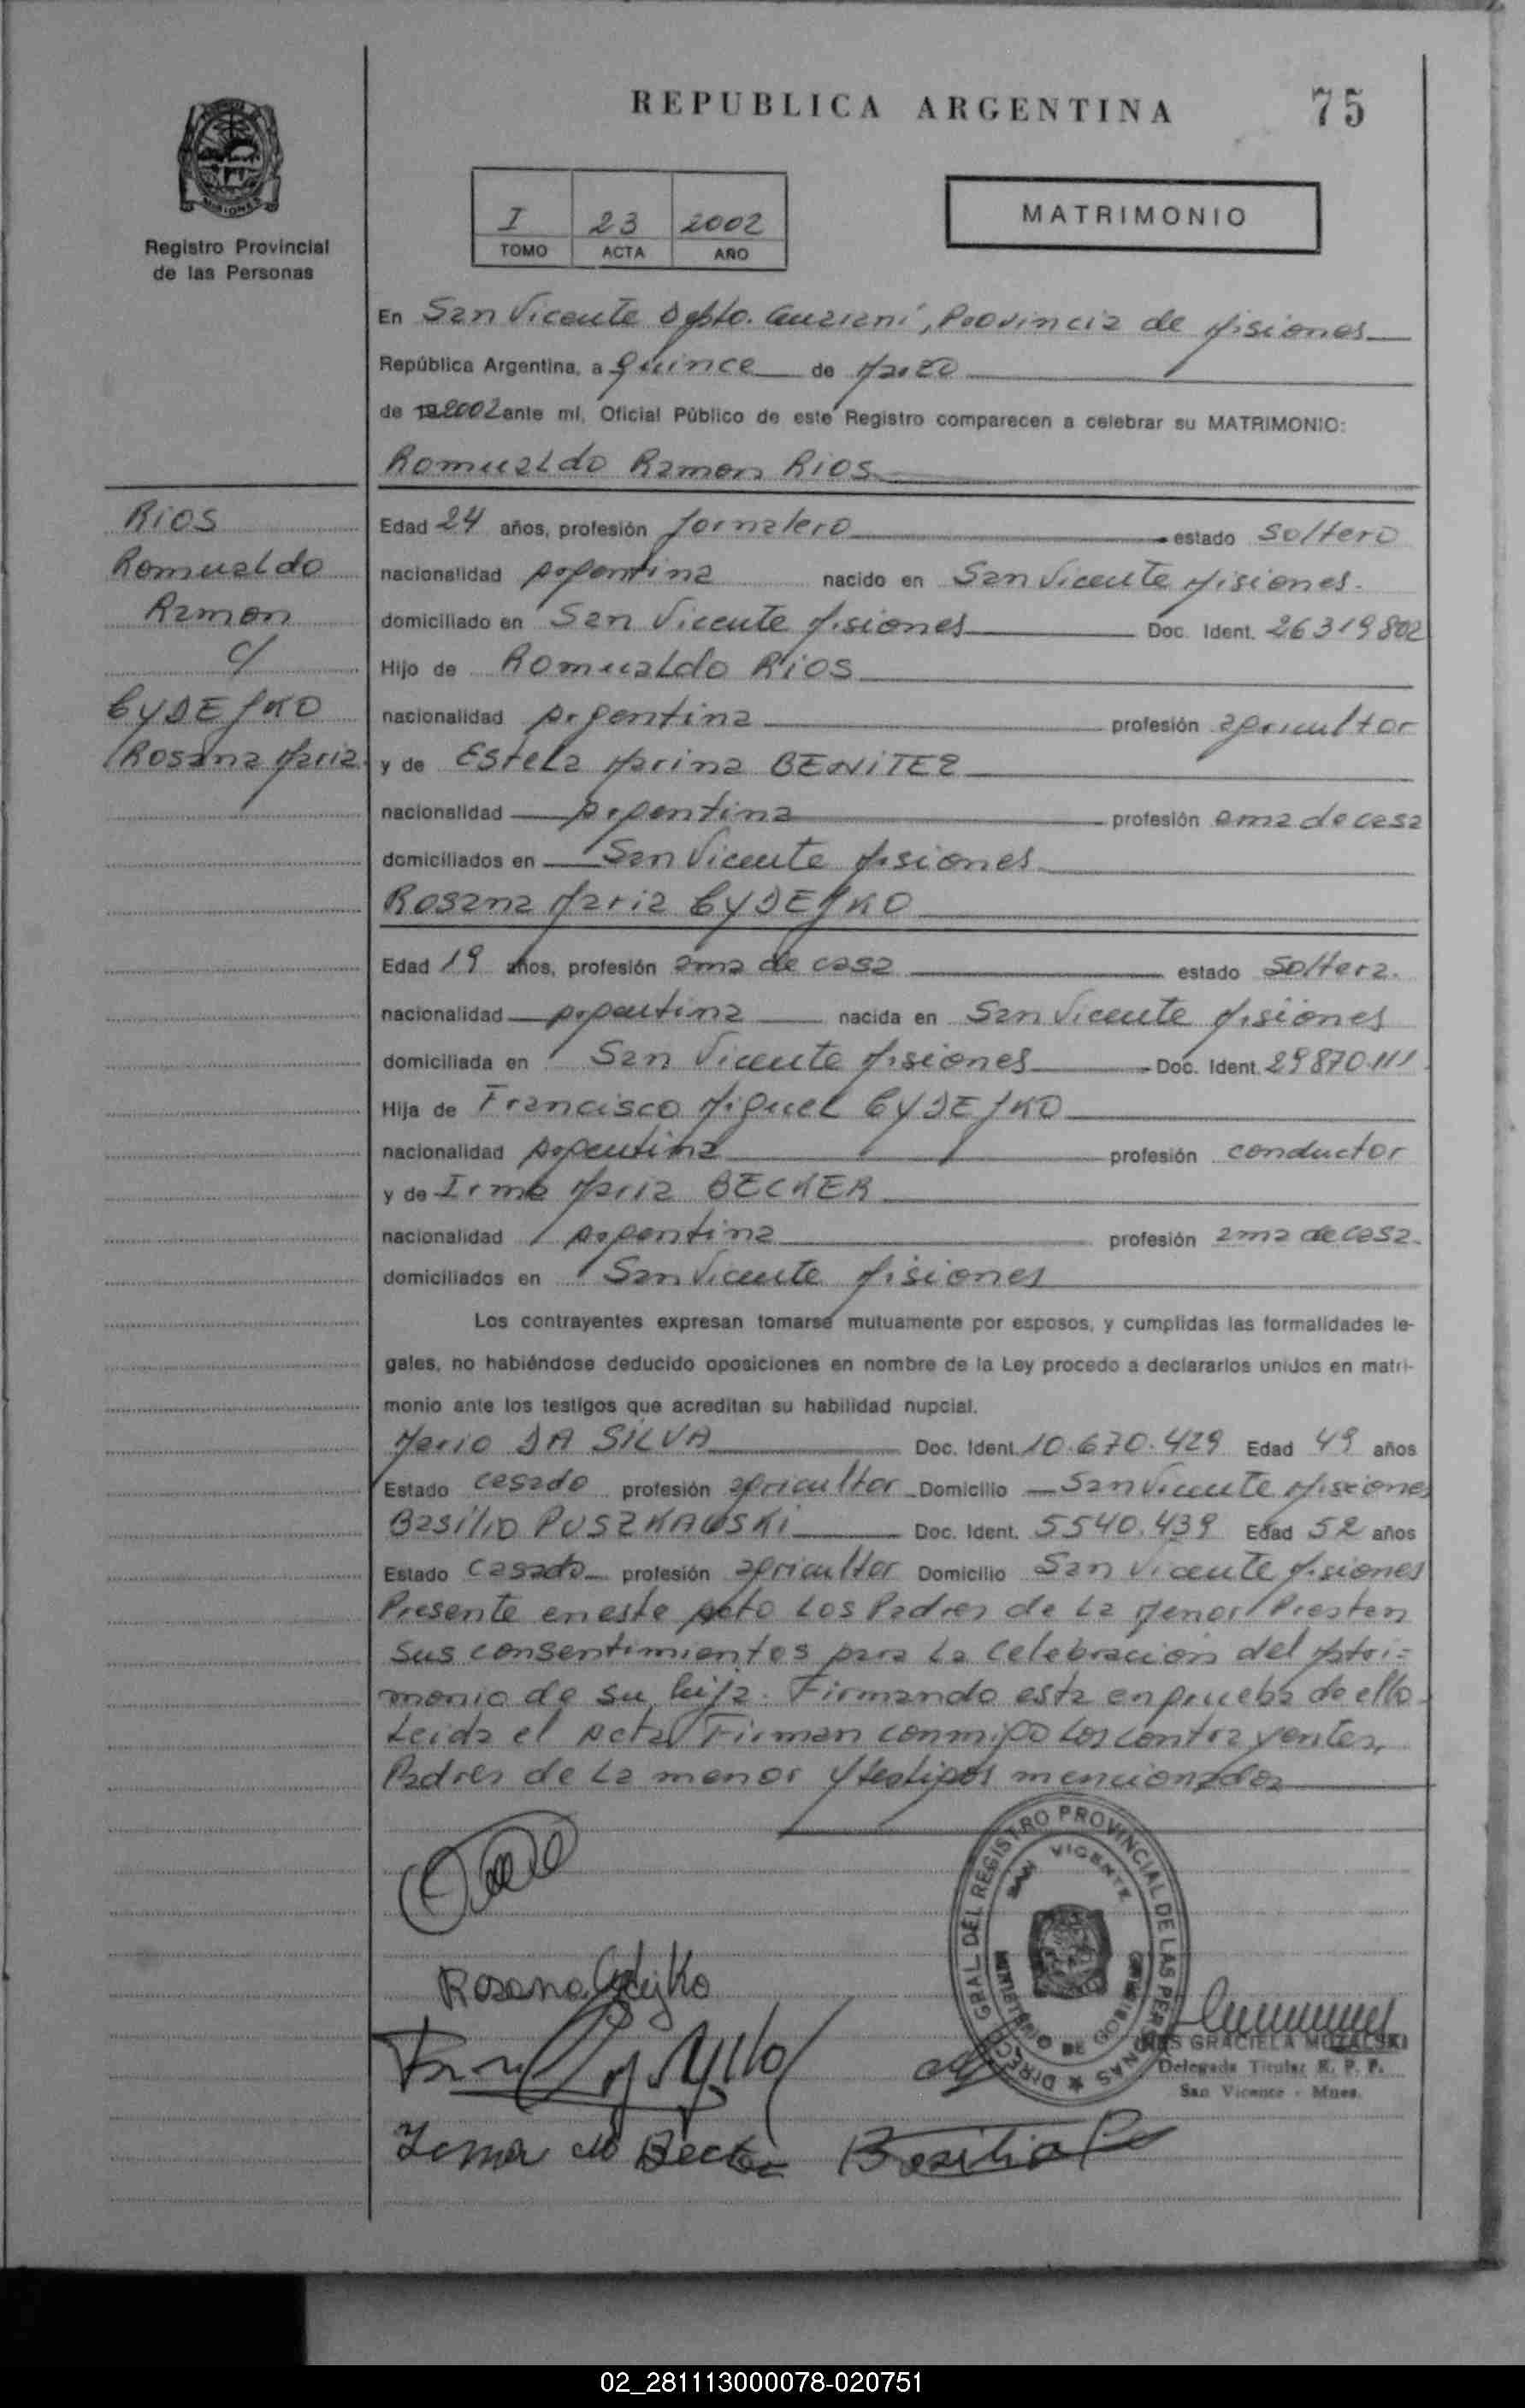 REPUBLICA ARGENTINA
75
MISIONES
Registro Provincial
de las Personas
I 23 2002
TOMO ACTA AÑO
MATRIMONIO
En San Vicente Depto. Guaraní, Provincia de Misiones
República Argentina, a quince de Marzo
de 19 2002 ante mí, Oficial Público de este Registro comparecen a celebrar su MATRIMONIO:
Romualdo Ramon Rios
RIOS
Romualdo
Ramon
c/
CYDEJKO
Rosana Maria
Edad 24 años, profesión Jornalero estado Soltero
nacionalidad Argentina nacido en San Vicente Misiones.
domiciliado en San Vicente Misiones Doc. Ident. 26319802
Hijo de Romualdo RIOS
nacionalidad Argentina profesión agricultor
y de Estela Marina BENITEZ
nacionalidad Argentina profesión ama de casa
domiciliados en San Vicente Misiones
Rosana Maria CYDEJKO
Edad 19 años, profesión ama de casa estado Soltera.
nacionalidad Argentina nacida en San Vicente Misiones
domiciliada en San Vicente Misiones Doc. Ident. 29870.111
Hija de Francisco Miguel CYDEJKO
nacionalidad Argentina profesión conductor
y de Irma Maria BECKER
nacionalidad Argentina profesión ama de casa.
domiciliados en San Vicente Misiones
Los contrayentes expresan tomarse mutuamente por esposos, y cumplidas las formalidades le-
gales, no habiéndose deducido oposiciones en nombre de la Ley procedo a declararlos unidos en matri-
monio ante los testigos que acreditan su habilidad nupcial.
Mario DA SILVA Doc. Ident. 10.670.429 Edad 49 años
Estado casado profesión agricultor Domicilio San Vicente Misiones
Basilio PUSZKAUSKI Doc. Ident. 5540.439 Edad 52 años
Estado casado profesión agricultor Domicilio San Vicente Misiones
Presente en este Acto Los Padres de La Menor Prestan
Sus consentimientos para La Celebracion del Matri=
monio de su hija. Firmando esta en prueba de ello.
Leida el Acta Firman conmigo Los contrayentes,
Padres de La menor y testigos mencionados
DIRECC. GRAL DEL REGISTRO PROVINCIAL DE LAS PERSONAS
SAN VICENTE
MINISTERIO DE GOBIERNO
Rosana Cydejko
GRACIELA MOZALSKI
Delegada Titular R. P. P.
San Vicente - Mnes.
Irma M Becker
Basilio Pu
02_281113000078-020751